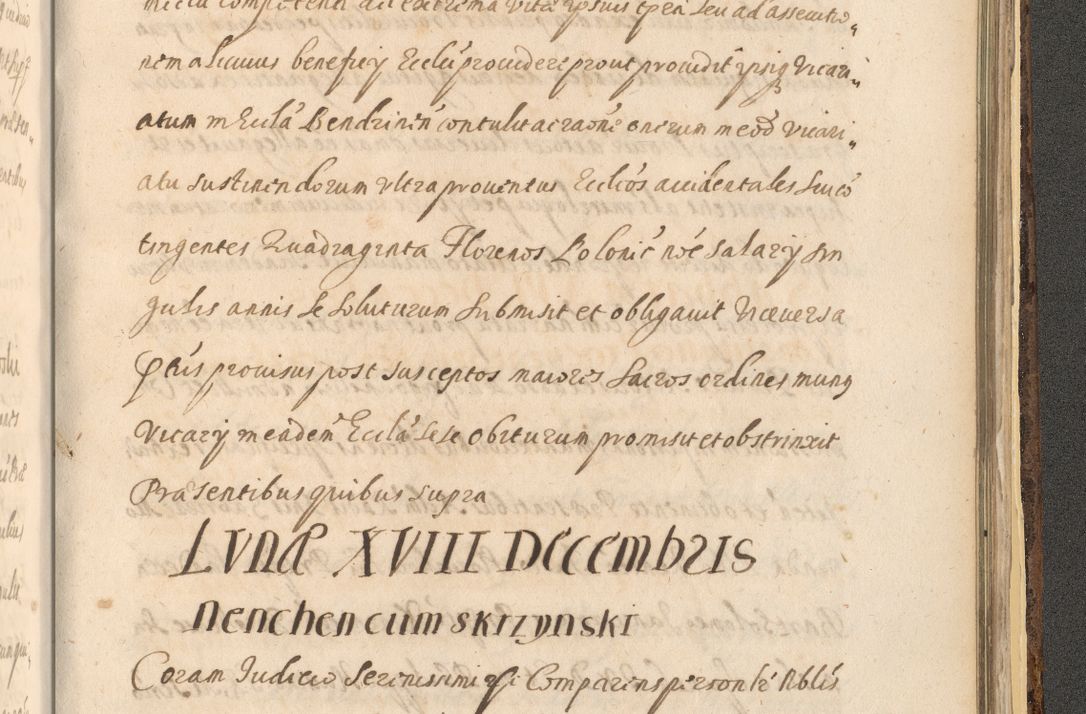 competenti ad extrema vitæ ipsius tpea seu ad assecutio„
nem alicuius beneficÿ Eccliī providere prout providit ipsiq Vicari„
atum in Ecclā Bendzinēn contulit ac raōne onerum in eōd Vicari„
atu sustinendorum ultra proventus Ecclicōs accidentales sive cō
tingentes Quadraginta Florenos Poloniē nōe salarÿ sin
gulis annis se soluturum submisit et obligavit Viceversa
ptūs provisus post susceptos maiores sacros ordines munq
Vicarÿ in eādem Ecclā sese obiturum promisit et obstrinxit
Præsentibus quibus supra
LVNÆ XVIII DECEMBRIS
nenchen cum skrzynski
Coram Iudicio Serenissimi Comparens personlr Nblis